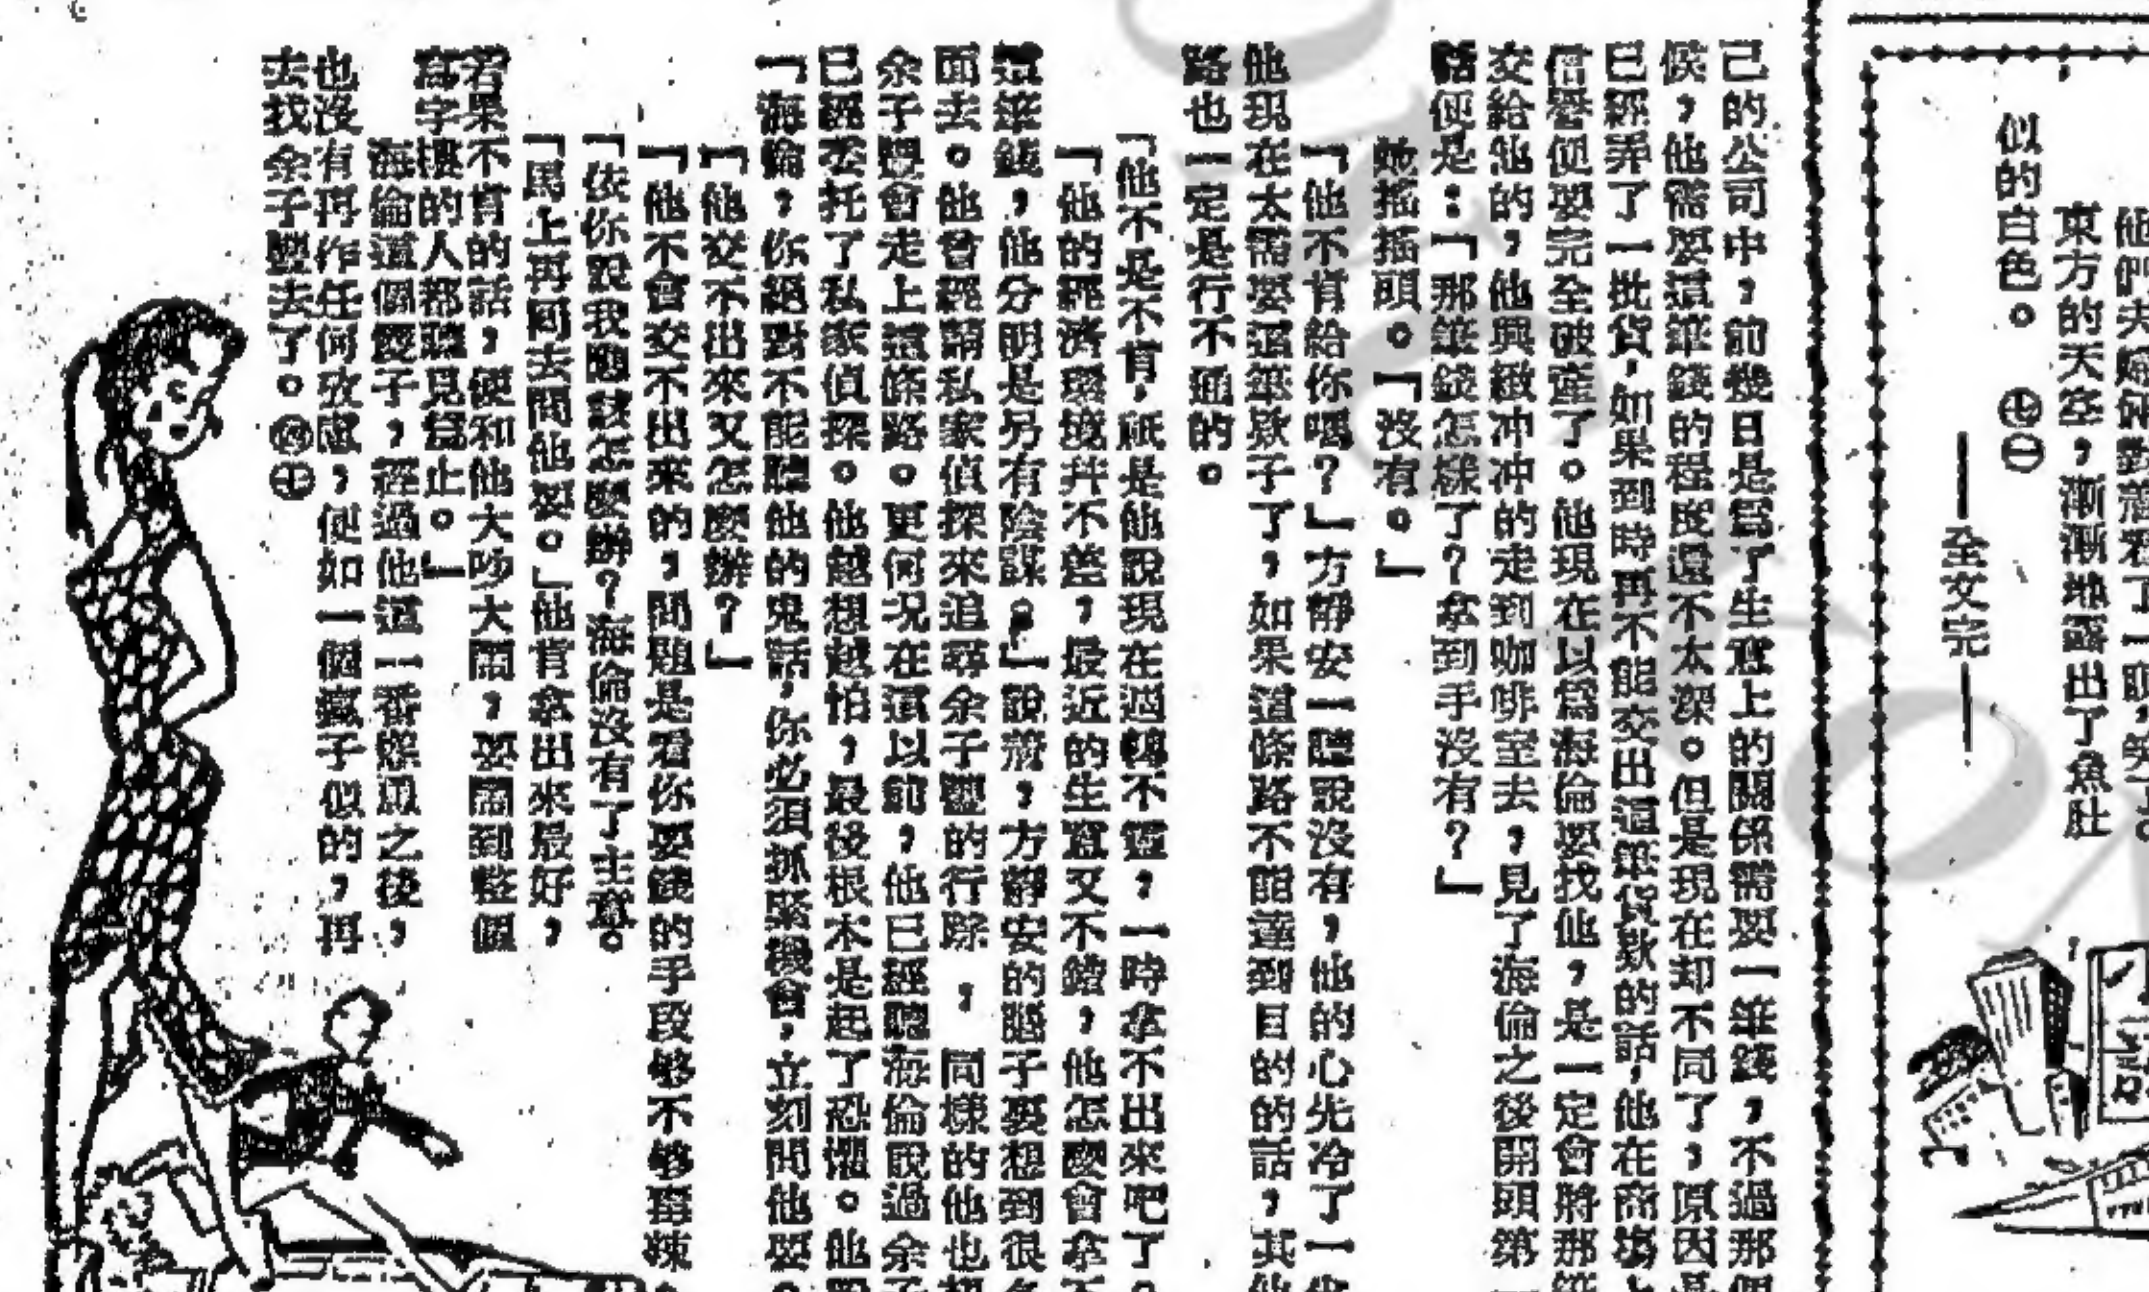 東方的天空，漸漸地露出了魚肚
似的白色。㊀
——全文完——
己的公司中，前幾日是爲了生意上的關係需要一筆錢，不過那個
候，他需要這筆錢的程度還不太深。但是現在却不同了，原因是
已經弄了一批貨，如果到時再不能交出這筆貨款的話，他在商場上
信譽便要完全破產了。他現在以爲海倫要找他，是一定會將那筆
交給他的，他興緻冲冲的走到咖啡室去，見了海倫之後開頭第一
話便是：「那筆錢怎樣了？拿到手沒有？」
她搖搖頭。「沒有。」
「他不肯給你嗎？」方靜安一聽說沒有，他的心先冷了一
他現在太需要這筆欵子了，如果這條路不能達到目的的話，其他
路也一定是行不通的。
「他不是不肯，祇是他說現在週轉不靈，一時拿不出來吧了。
「他的經濟環境幷不差，最近的生意又不錯，他怎麼會拿不
這筆錢，他分明是另有陰謀。」說着，方靜安的腦子要想到很
面去。他曾經請私家偵探來追尋余子豐的行踪，同樣的他也
余子豐會走上這條路。更何况在這以前，他已經聽海倫說過余子
已經委托了私家偵探。他越想越怕，最後根本是起了恐懼。他
「海倫，你絕對不能聽他的鬼話，你必須抓緊機會，立刻問他要。
「他交不出來又怎麽辦？」
「他不會交不出來的，問題是看你要錢的手段够不够毒辣。
「依你說我應該怎麽辦？海倫沒有了主意。
「馬上再囘去問他要。」他肯拿出來最好，
若果不肯的話，便和他大吵大鬧，要鬧到整個
寫字樓的人都聽見爲止。」
海倫這個優子，經過他這一番慫恿之後，
也沒有再作任何攷慮，便如一個瘋子似的，再
去找余子豐去了。